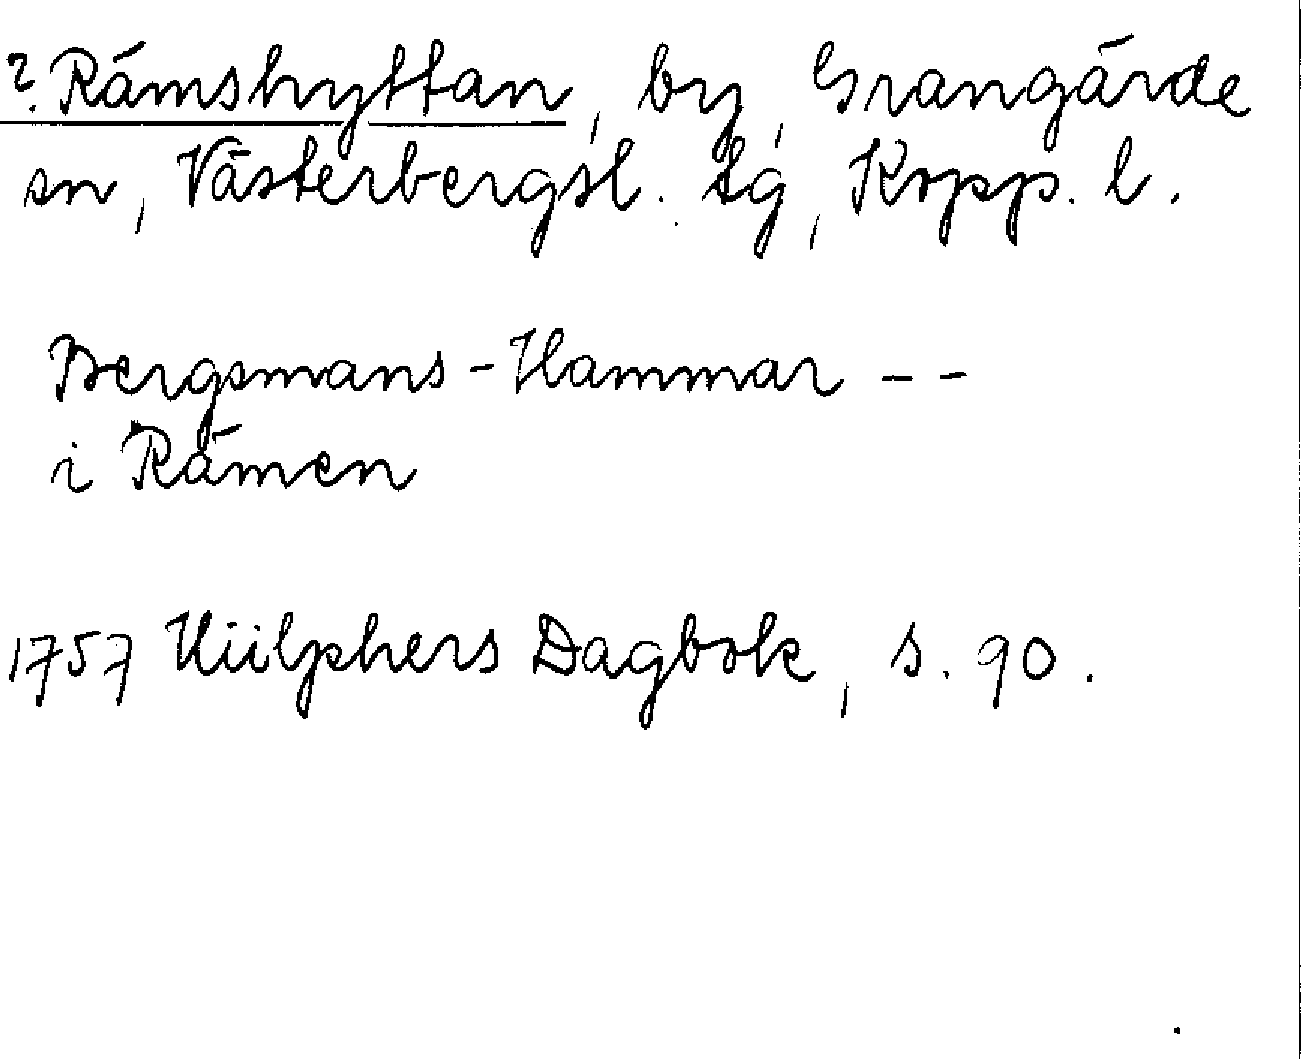 ?. Rämshyttan, by, Grangärde
sn, Västerbergsl. tg, Kopp. l.
Bergsmans-Hammar --
i Rämen
1757 Hülphers Dagbok, s. 90.